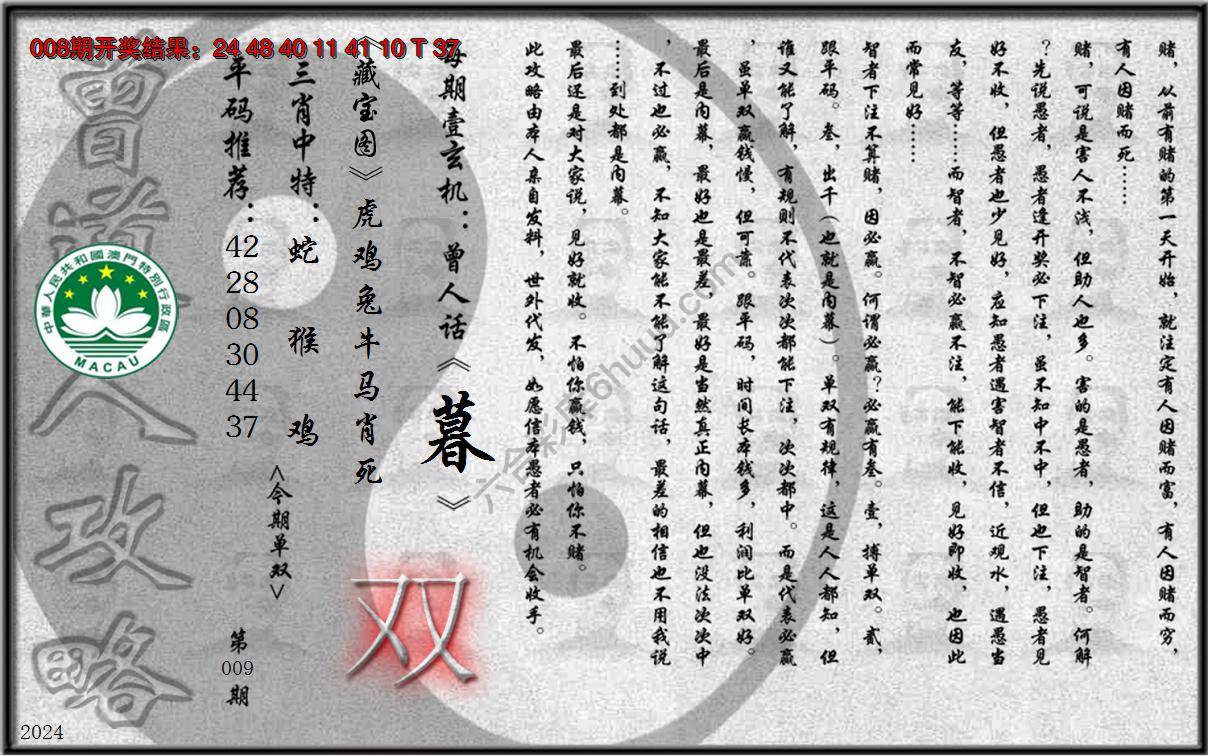 008期开奖结果：24 48 40 11 41 10 T 37
赌，从前有赌的第一天开始，就注定有人因赌而富，有人因赌而穷，
有人因赌而死……
赌，可说是害人不浅，但助人也多。害的是愚者，助的是智者。何解
？先说愚者，愚者逢开奖必下注，虽不知中不中，但也下注，愚者见
好不收，但愚者也少见好，应知愚者遇害智者不信，近观水，遇愚当
友，等等……而智者，不智必赢不注，能下能收，见好即收，也因此
而常见好……
智者下注不算赌，因必赢。何谓必赢？必赢有叁。壹，搏单双。贰，
跟平码。叁，出千（也就是内幕）。单双有规律，这是人人都知，但
谁又能了解，有规则不代表次次都能下注，次次都中。而是代表必赢
，虽单双赢钱慢，但可靠。跟平码，时间长本钱多，利润比单双好。
最后是内幕，最好也是最差，最好是当然真正内幕，但也没法次次中
，不过也必赢，不知大家能不能了解这句话，最差的相信也不用我说
……到处都是内幕。
最后还是对大家说，见好就收。不怕你赢钱，只怕你不赌。
此攻略由本人亲自发料，世外代发，如愿信本愚者必有机会收手。
每期壹玄机：曾人话《暮》
《藏宝图》虎鸡兔牛马肖死
双
三肖中特：蛇 猴 鸡
<今期单双>
平码推荐：42 28 08 30 44 37
第009期
曾道人攻略
中華人民共和國澳門特別行政區
MACAU
六合彩库6huuu.com
2024